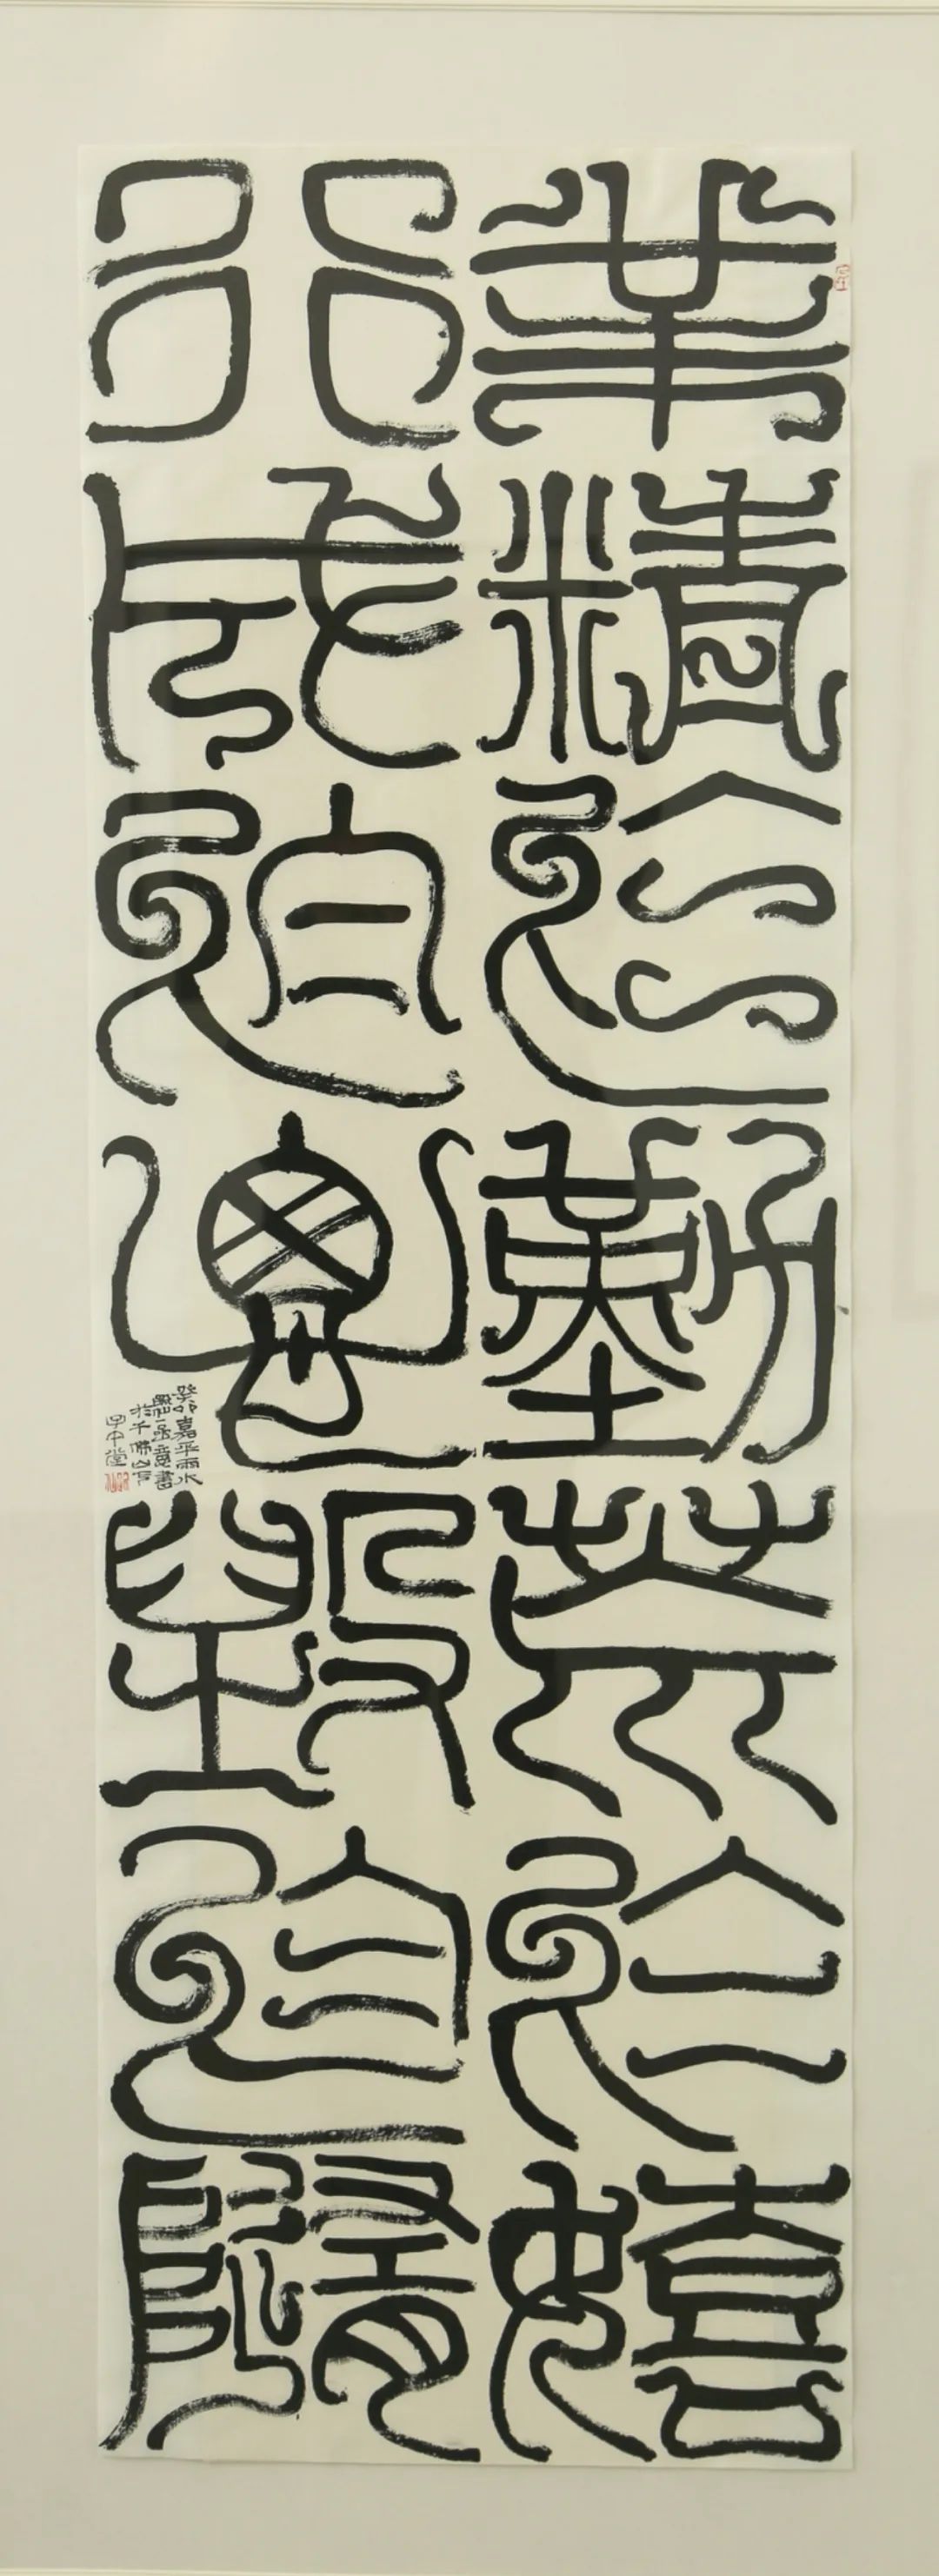 業精於勤荒於嬉
行成於思毀於隨
癸卯嘉平
於千佛山